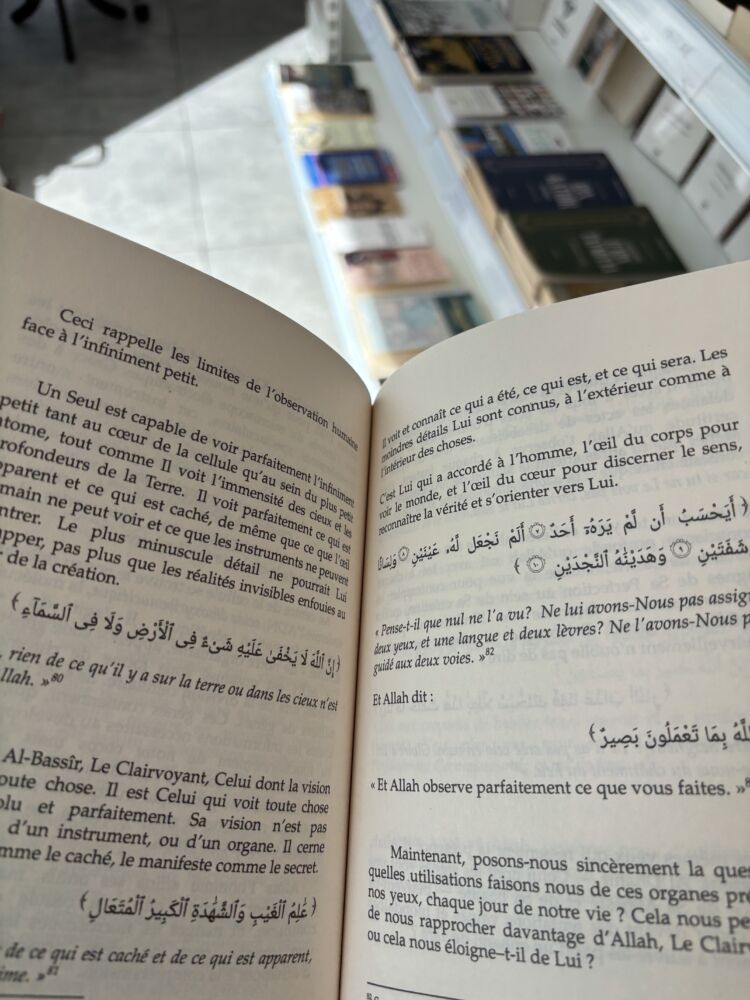 Ceci rappelle les limites de l'observation humaine
face à l'infiniment petit.
Un Seul est capable de voir parfaitement l'infiniment
petit tant au cœur de la cellule qu'au sein du plus petit
atome, tout comme Il voit l'immensité des cieux et les
profondeurs de la Terre. Il voit parfaitement ce qui est
apparent et ce qui est caché, de même que ce que l'œil
main ne peut voir et ce que les instruments ne peuvent
ntrer. Le plus minuscule détail ne pourrait Lui
apper, pas plus que les réalités invisibles enfouies au
de la création.
﴿ إِنَّ ٱللَّهَ لَا يَخْفَىٰ عَلَيْهِ شَىْءٌ فِى ٱلْأَرْضِ وَلَا فِى ٱلسَّمَآءِ ﴾
rien de ce qu'il y a sur la terre ou dans les cieux n'est
llah. »80
Al-Bassîr, Le Clairvoyant, Celui dont la vision
oute chose. Il est Celui qui voit toute chose
olu et parfaitement. Sa vision n'est pas
d'un instrument, ou d'un organe. Il cerne
mme le caché, le manifeste comme le secret.
﴿ عَٰلِمُ ٱلْغَيْبِ وَٱلشَّهَٰدَةِ ٱلْكَبِيرُ ٱلْمُتَعَالِ ﴾
de ce qui est caché et de ce qui est apparent,
ime. »81
Il voit et connaît ce qui a été, ce qui est, et ce qui sera. Les
moindres détails Lui sont connus, à l'extérieur comme à
l'intérieur des choses.
C'est Lui qui a accordé à l'homme, l'œil du corps pour
voir le monde, et l'œil du cœur pour discerner le sens,
reconnaître la vérité et s'orienter vers Lui.
﴿ أَيَحْسَبُ أَن لَّمْ يَرَهُۥٓ أَحَدٌ ۝٧ أَلَمْ نَجْعَل لَّهُۥ عَيْنَيْنِ ۝٨ وَلِسَانًا
شَفَتَيْنِ ۝٩ وَهَدَيْنَٰهُ ٱلنَّجْدَيْنِ ۝١٠ ﴾
« Pense-t-il que nul ne l'a vu? Ne lui avons-Nous pas assig
deux yeux, et une langue et deux lèvres? Ne l'avons-Nous p
guidé aux deux voies. »82
Et Allah dit :
للَّهُ بِمَا تَعْمَلُونَ بَصِيرٌ ﴾
« Et Allah observe parfaitement ce que vous faites. »
Maintenant, posons-nous sincèrement la que
quelles utilisations faisons nous de ces organes pré
nos yeux, chaque jour de notre vie ? Cela nous pe
de nous rapprocher davantage d'Allah, Le Clair
ou cela nous éloigne–t-il de Lui ?